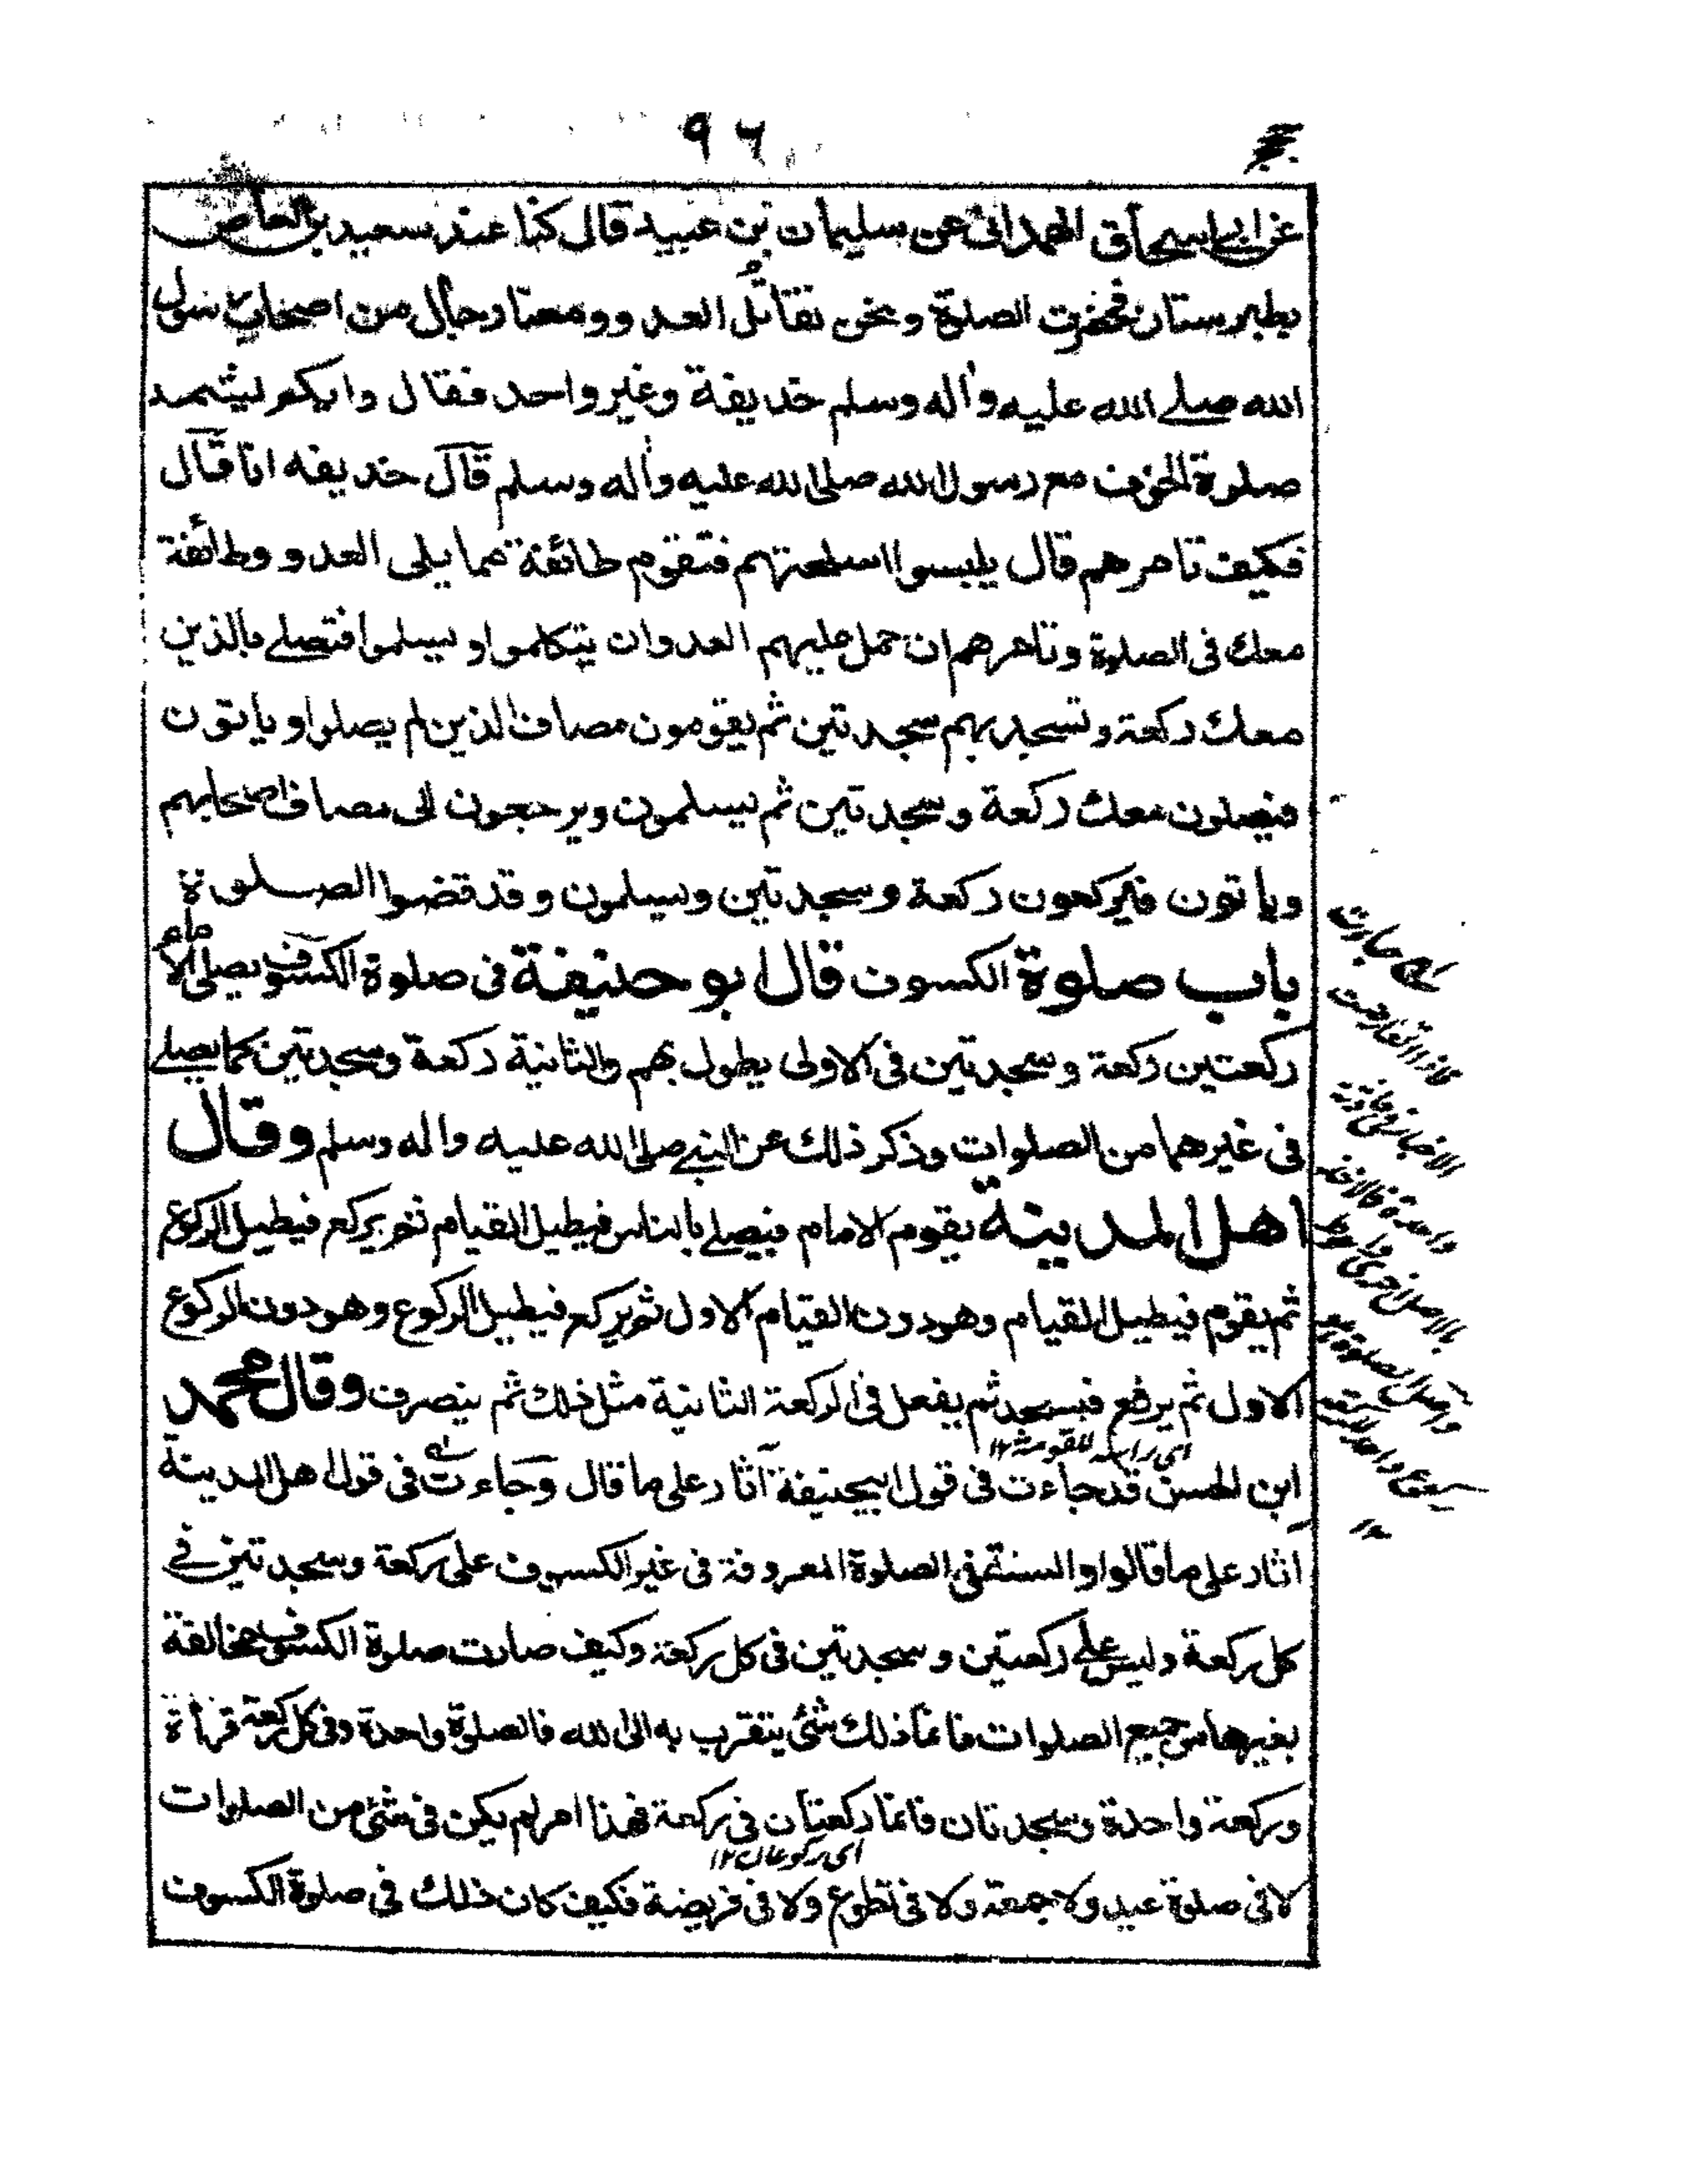 ٩٦
عن ابى اسحاق الهمدانى عن سليمان بن عبيد قال كنا عند سعيد بن العاص
بطبرستان فحضرت الصلوة ونحن نقاتل العدو ومعنا رجال من اصحاب رسول
الله صلے الله عليه واٰله وسلم حذيفة وغير واحد فقال وايكم ليشهد
صلوة الخوف مع رسول الله صلى الله عليه واٰله وسلم قال حذيفه انا قال
فكيف تامرهم قال يلبسوا اسلحتهم فتقوم طائفة مما يلى العدو وطائفة
معك فى الصلوة وتامرهم ان حمل عليهم العدو ان يتكلموا و يسلموا فتصلے بالذين
معك ركعة وتسجد بهم سجدتين ثم يقومون مصاف الذين لم يصلوا وياتون
فيصلون معك ركعة وسجدتين ثم يسلمون ويرجعون الى مصاف اصحابهم
وياتون فيركعون ركعة وسجدتين ويسلمون وقد قضوا الصلوة
باب صلوة الكسوف قال ابو حنيفة فى صلوة الكسوف يصلى الامام
ركعتين ركعة وسجدتين فى الاولى يطول بهم والثانية ركعة وسجدتين كما يصلے
فى غيرهما من الصلوات وذكر ذلك عن النبے صلى الله عليه واله وسلم وقال
اهل المدينة يقوم الامام فيصلے بالناس فيطيل القيام ثم يركع فيطيل الركوع
ثم يقوم فيطيل القيام وهو دون القيام الاول ثم يركع فيطيل الركوع وهو دون الركوع
الاول ثم يرفع فيسجد ثم يفعل فى الركعة الثانية مثل ذلك ثم ينصرف وقال محمد
ابن الحسن قد جاءت فى قول ابيحنيفة آثار على ما قال وجاءت فى قول اهل المدينة
اثار على ما قالوا والسنة فى الصلوة المعروفة فى غير الكسوف على ركعة وسجدتين فے
كل ركعة وليس على ركعتين وسجدتين فى كل ركعة وكيف صارت صلوة الكسوف مخالفة
بغيرها من جميع الصلوات فانما ذلك شئ يتقرب به الى الله فالصلوة واحدة وفى كل ركعة قرأة
وركعة واحدة وسجدتان فانما ركعتان فى ركعة فهذا امر لم يكن فى شئ من الصلوات
اى ركوعان ١٢
لا فى صلوة عيد ولا جمعة ولا فى تطوع ولا فى فريضة فكيف كان ذلك فى صلوة الكسوف